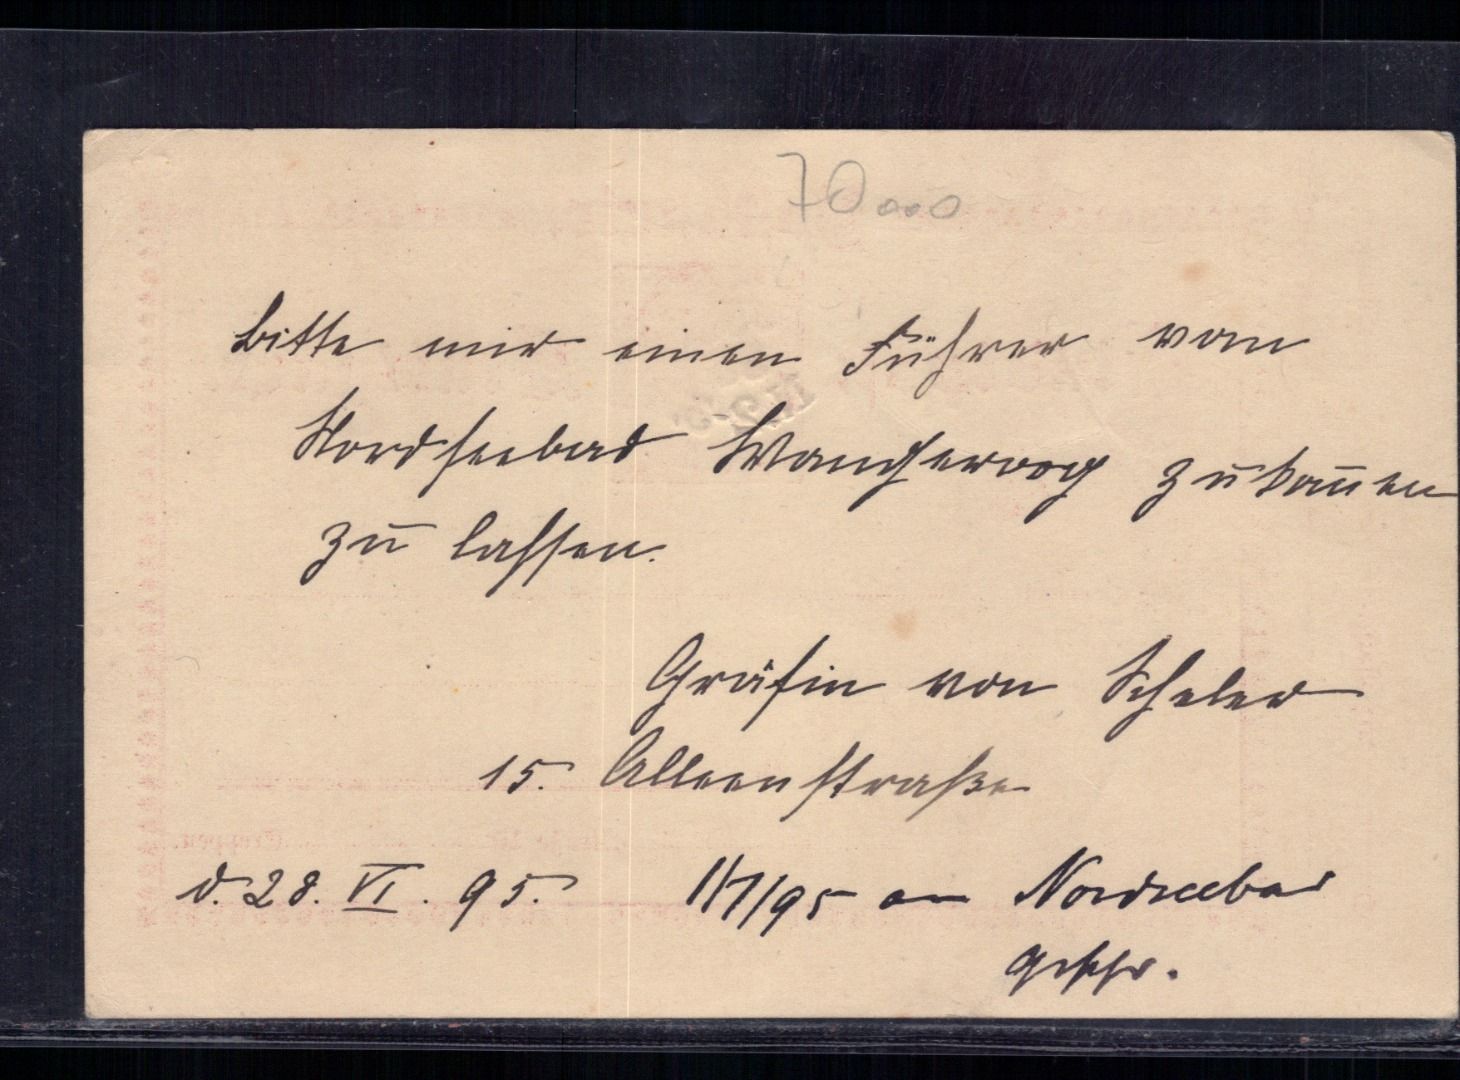 70000
Bitte mir einen Führer vom
Nordseebad Wangeroog zukom̅en
zu lassen.
Gräfin von Scheler
15. Alleenstraße
d. 28. VI. 95.
1/7/95 an Nordseebad
geschr.